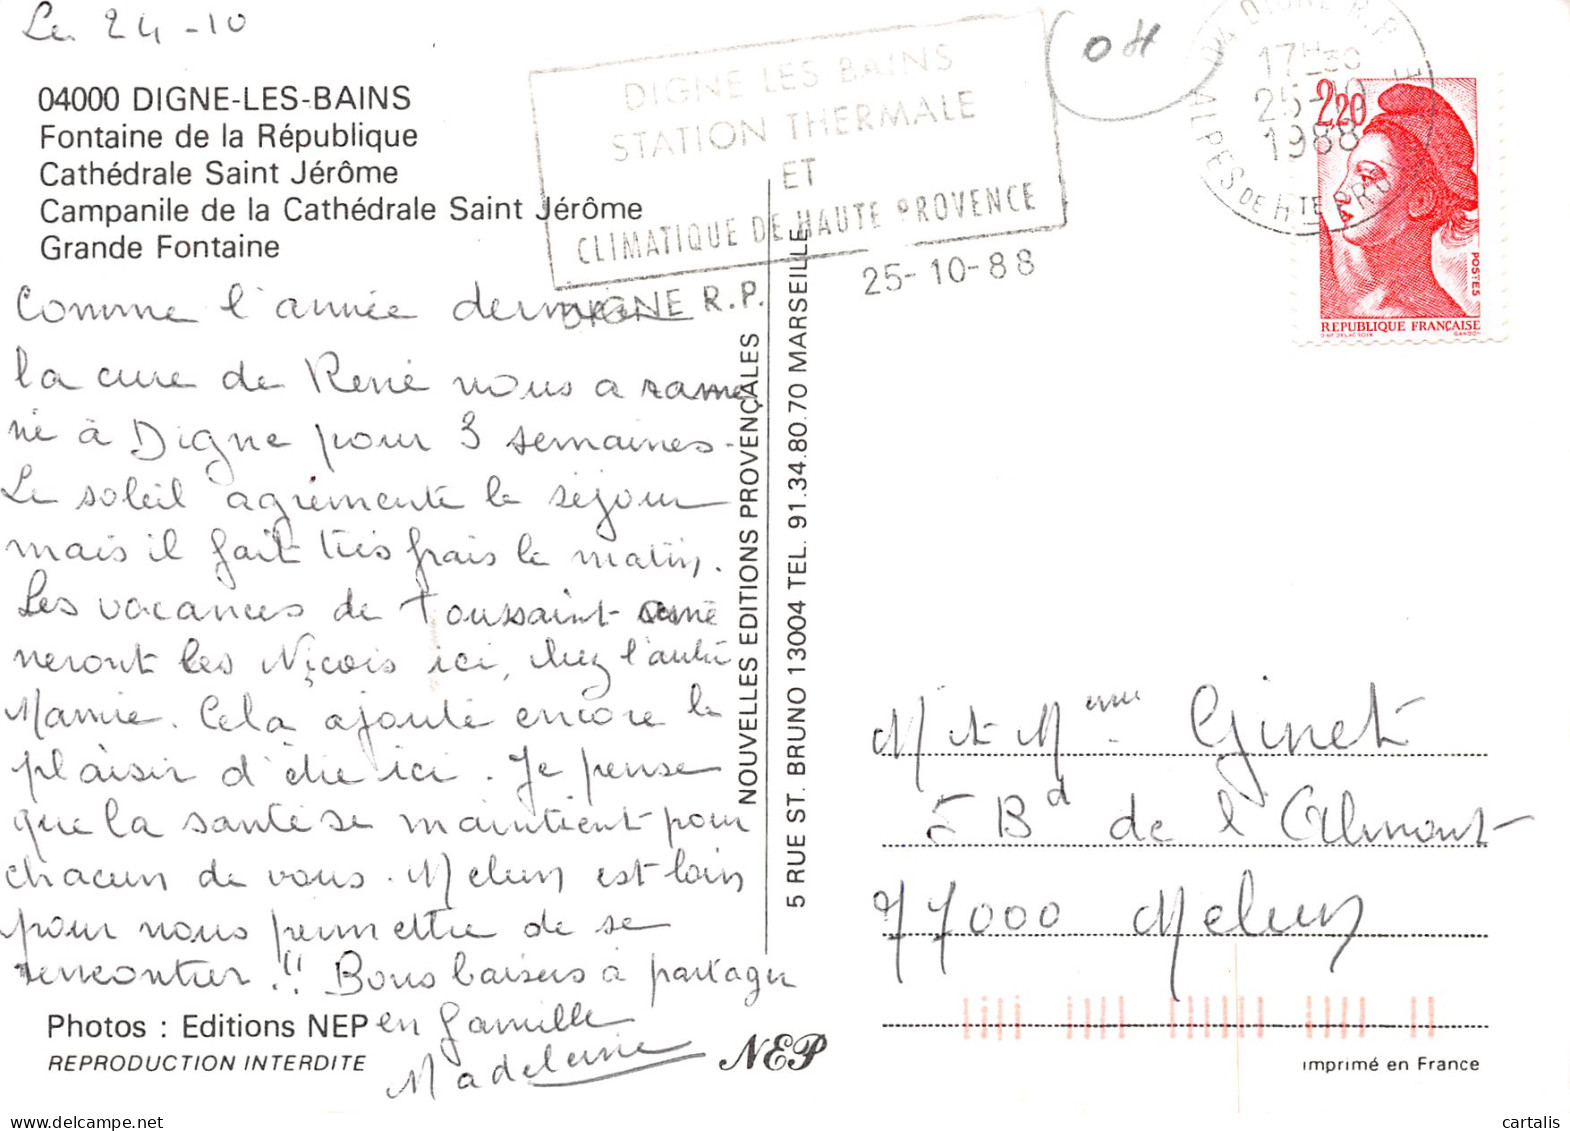 Le 24-10
04000 DIGNE-LES-BAINS
Fontaine de la République
Cathédrale Saint Jérôme
Campanile de la Cathédrale Saint Jérôme
Grande Fontaine
Comme l'année dernière
la cure de René nous a rame
né à Digne pour 3 semaines.
Le soleil agrémente le séjour
mais il fait très frais le matin.
Les vacances de Toussaint amè
neront les Niçois ici, chez l'autre
Mamie. Cela ajoute encore le
plaisir d'être ici. Je pense
que la santé se maintient pour
chacun de vous. Melun est loin
pour nous permettre de se
rencontrer !! Bons baisers à partager
en famille
Madeleine
Photos : Editions NEP
REPRODUCTION INTERDITE
NEP
NOUVELLES EDITIONS PROVENÇALES
5 RUE ST. BRUNO 13004 TEL. 91.34.80.70 MARSEILLE
DIGNE LES BAINS
STATION THERMALE
ET
CLIMATIQUE DE HAUTE PROVENCE
DIGNE R.P. 25-10-88
04
04 DIGNE R.P.
17H30
25-10
1988
ALPES DE HTE PR
2,20
POSTES
REPUBLIQUE FRANÇAISE
GANDON
M et Mme Ginet
5 Bd de l'Almont
77000 Melun
imprimé en France
cartalis